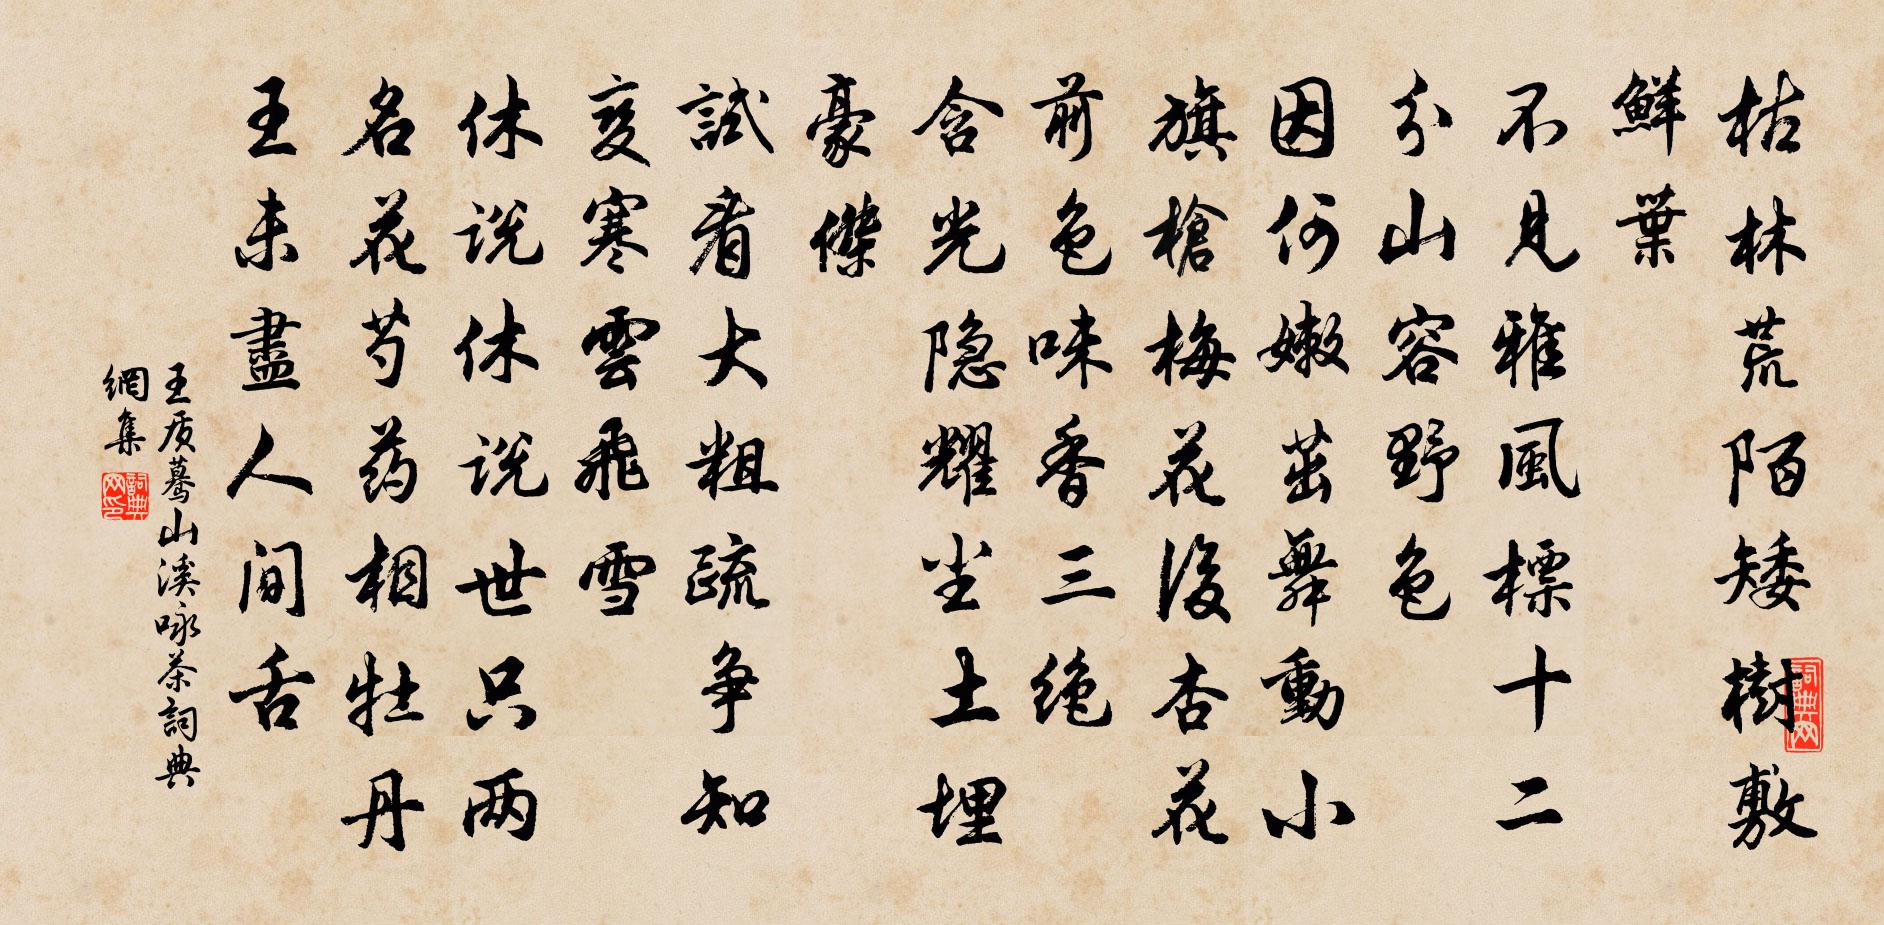 枯林荒陌矮樹敷
鮮葉
不見雅風標十二
分山容野色
因何嫩茁舞動小
旗槍梅花後杏花
前色味香三绝
含光隐耀尘土埋
豪傑
試看大粗疏争知
变寒雲飛雪
休说休说世只两
名花芍药相牡丹
王未盡人间舌
王质蓦山溪咏茶詞典
網集
詞典网
詞典网印